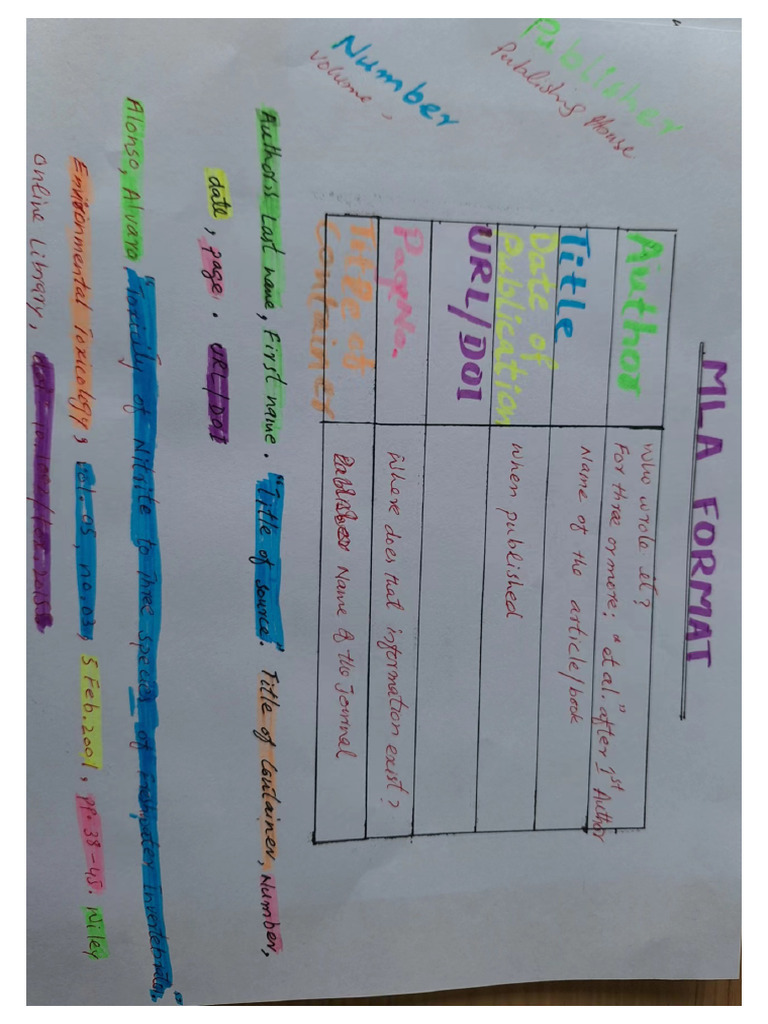 MLA FORMAT
Author
Who wrote it?
For three or more; "et al." after 1st Author
Title
Name of the article/book
Date of Publication
When published
URL/DOI
Page No.
Where does that information exist?
Title of Container
Name of the Journal
Publisher
Publishing House
Number
Volume,
Author's Last name, First name. "Title of source". Title of Container, Number,
date, page. URL/DOI
Alonso, Alvaro "Toxicity of Nitrite to Three Species of Freshwater Invertebrates"
Environmental Toxicology, vol. 05, no. 03, 5 Feb. 2001, pp. 38-45. Wiley
Online Library,